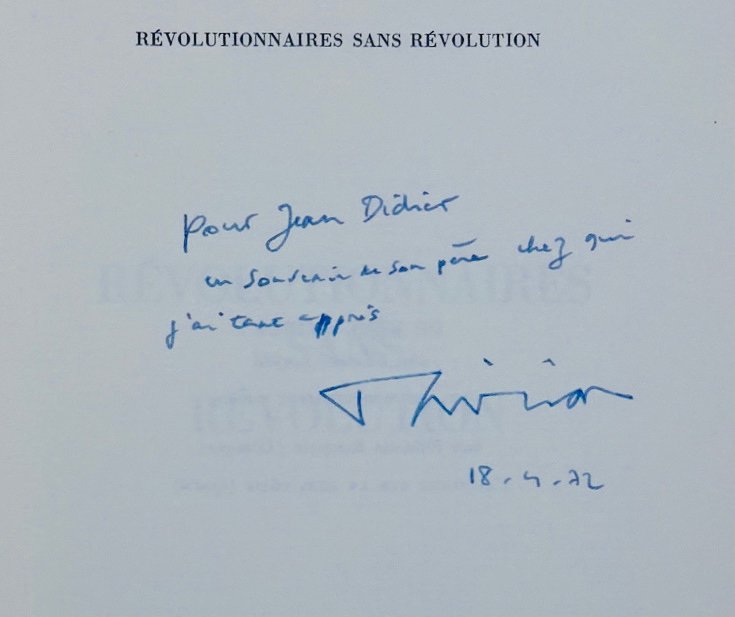 RÉVOLUTIONNAIRES SANS RÉVOLUTION
Pour Jean Didier
en souvenir de son père chez qui
j'ai tant appris
Thirion
18.4.72
RÉVOLUTIONNAIRES
RÉVOLUTION